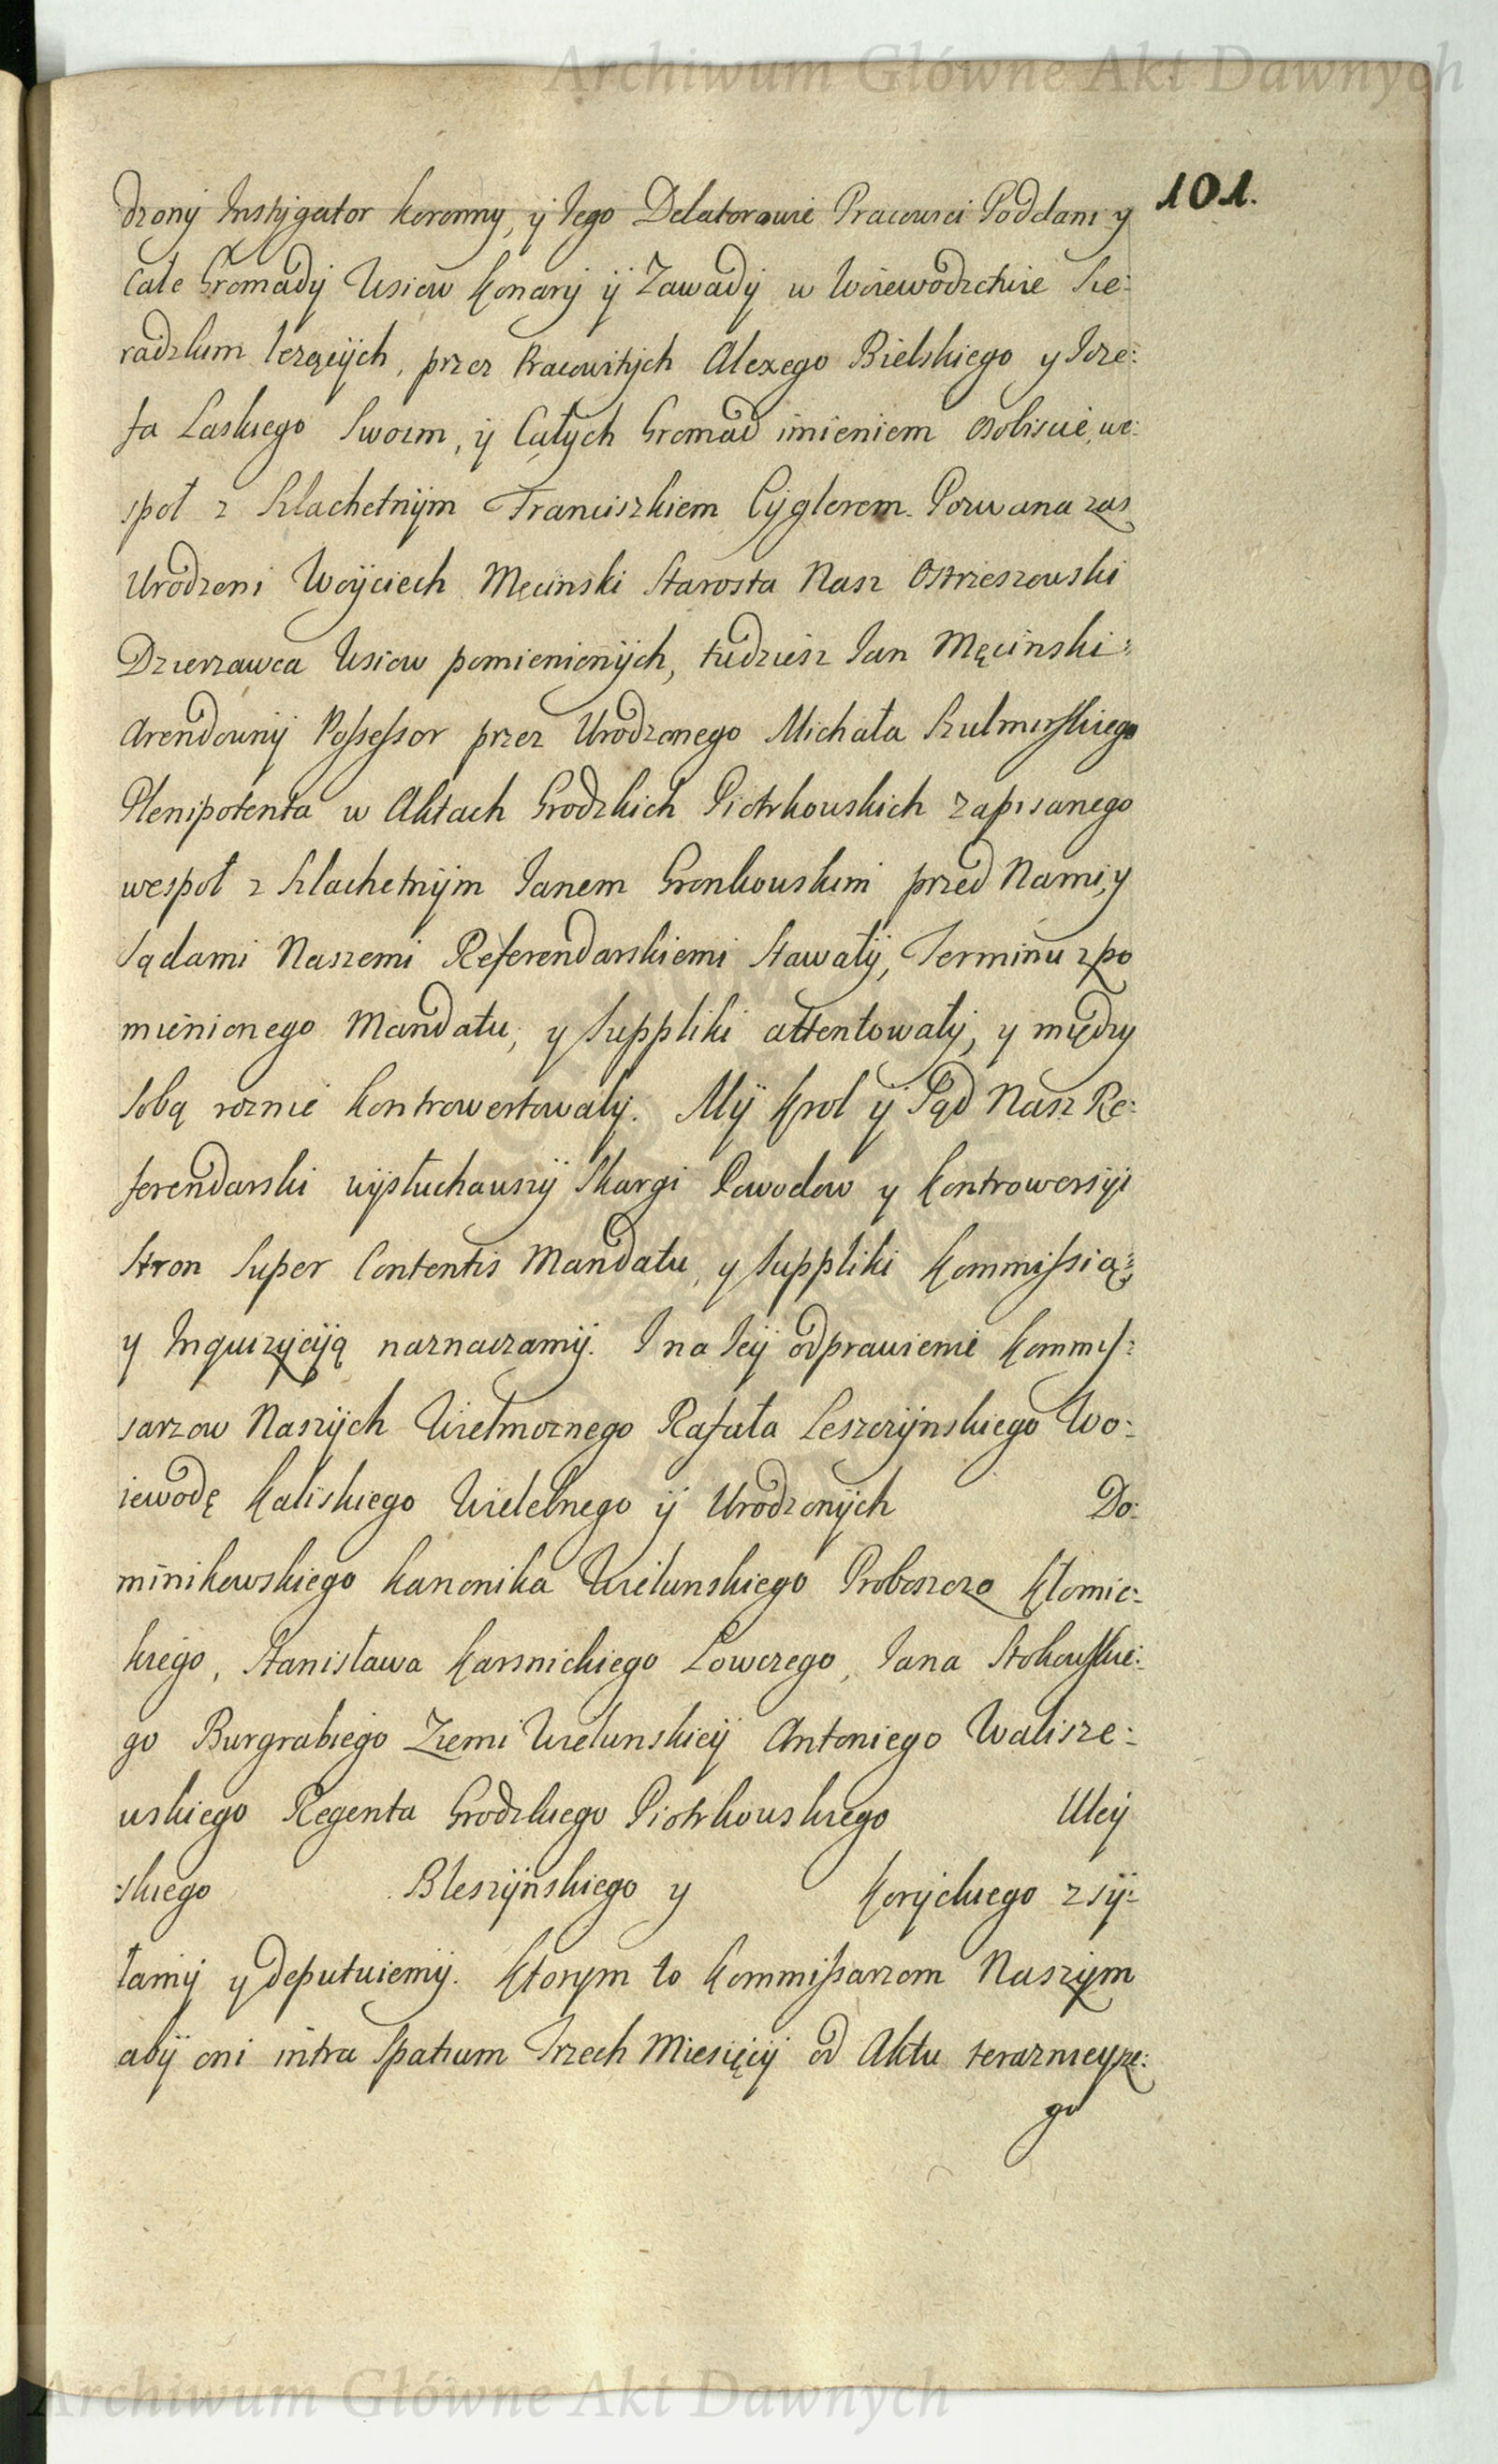 Archiwum Główne Akt Dawnych
101.
dzony Instygator Koronny, y Jego Delatorowie Pracowici Poddani y
Całe Gromady Wsiow Konary y Zawady w Woiewodztwie Sie:
radzkim lezących, przez Pracowitych Alexego Bielskiego y Joze:
fa Laskiego Swoim, y Całych Gromad imieniem osobiscie, we:
społ z Szlachetnym Franciszkiem Cyglerem. Pozwana zas
Urodzeni Woyciech Męcinski Starosta Nasz Ostrzeszowski
Dzierzawca Wsiow pomienionych, tudziesz Jan Męcinski:
Arendowny Possessor przez Urodzonego Michała Szulmirskiego
Plenipotenta w Aktach Grodzkich Piotrkowskich zapisanego
wespoł z Szlachetnym Janem Gronkowskim przed Nami, y
Sądami Naszemi Referendarskiemi Stawały, Terminu z po
mienionego Mandatu, y Suppliki attentowały, y między
Sobą roznie Kontrowertowały. My Krol y Sąd Nasz Re:
ferendarski wysłuchawszy Skargi Powodow y Kontrowersyi
Stron Super Contentis Mandatu, y Suppliki Kommissią:
y Inquizycyją naznaczamy. I na Jey odprawienie Kommis:
sarzow Naszych Wielmoznego Rafała Leszczynskiego Wo:
iewodę Kaliskiego Wielebnego y Urodzonych Do:
minikowskiego Kanonika Wielunskiego Proboszcza Kłomic:
kiego, Stanisława Karsnickiego Lowczego, Jana Stokowskie:
go Burgrabiego Ziemi Wielunskiey Antoniego Walisze:
wskiego Regenta Grodzkiego Piotrkowskiego Uley
skiego Bleszynskiego y Koryckiego zsy:
łamy y deputuiemy. Ktorym to Kommissarzom Naszym
aby oni intra Spatium Trzech Miesięcy od Aktu terazniejsze:
go
Archiwum Główne Akt Dawnych